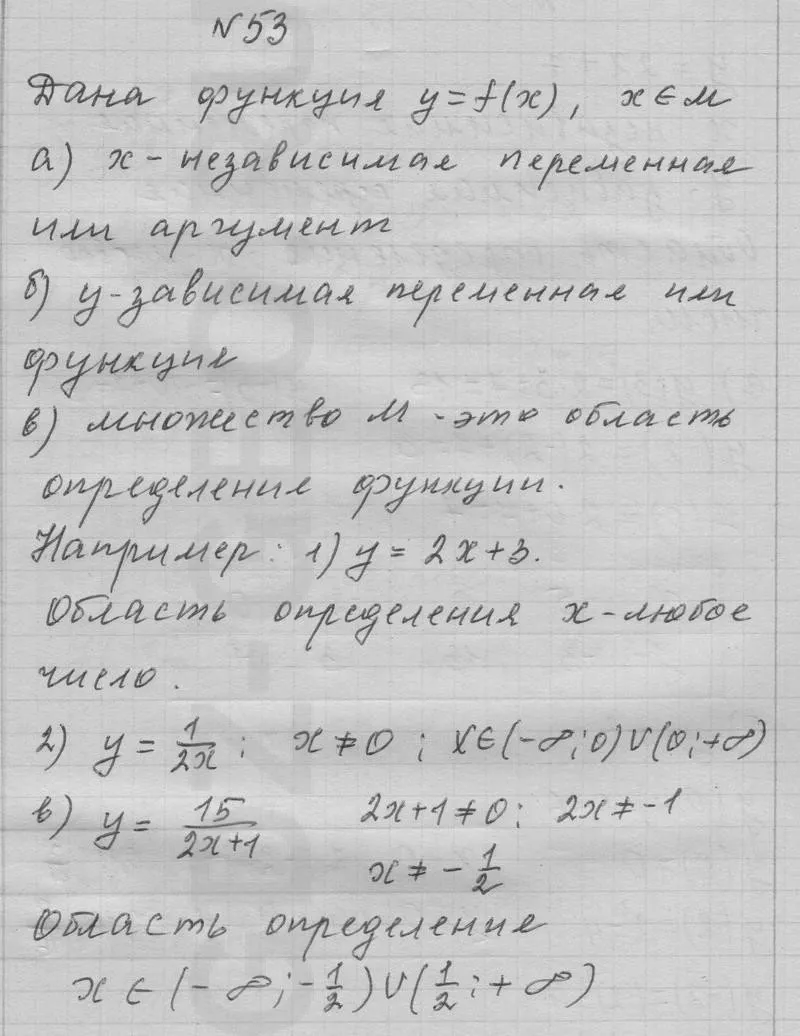 №53
Дана функция y=f(x), x∈M
а) x - независимая переменная
или аргумент
б) y - зависимая переменная или
функция
в) множество M - это область
определение функции.
Например: 1) y = 2x+3.
Область определения x - любое
число.
2) y = 1/2x; x≠0; x∈(-∞;0)∪(0;+∞)
в) y = 15/(2x+1) 2x+1≠0; 2x≠-1
x≠-1/2
Область определение
x∈(-∞;-1/2)∪(1/2;+∞)